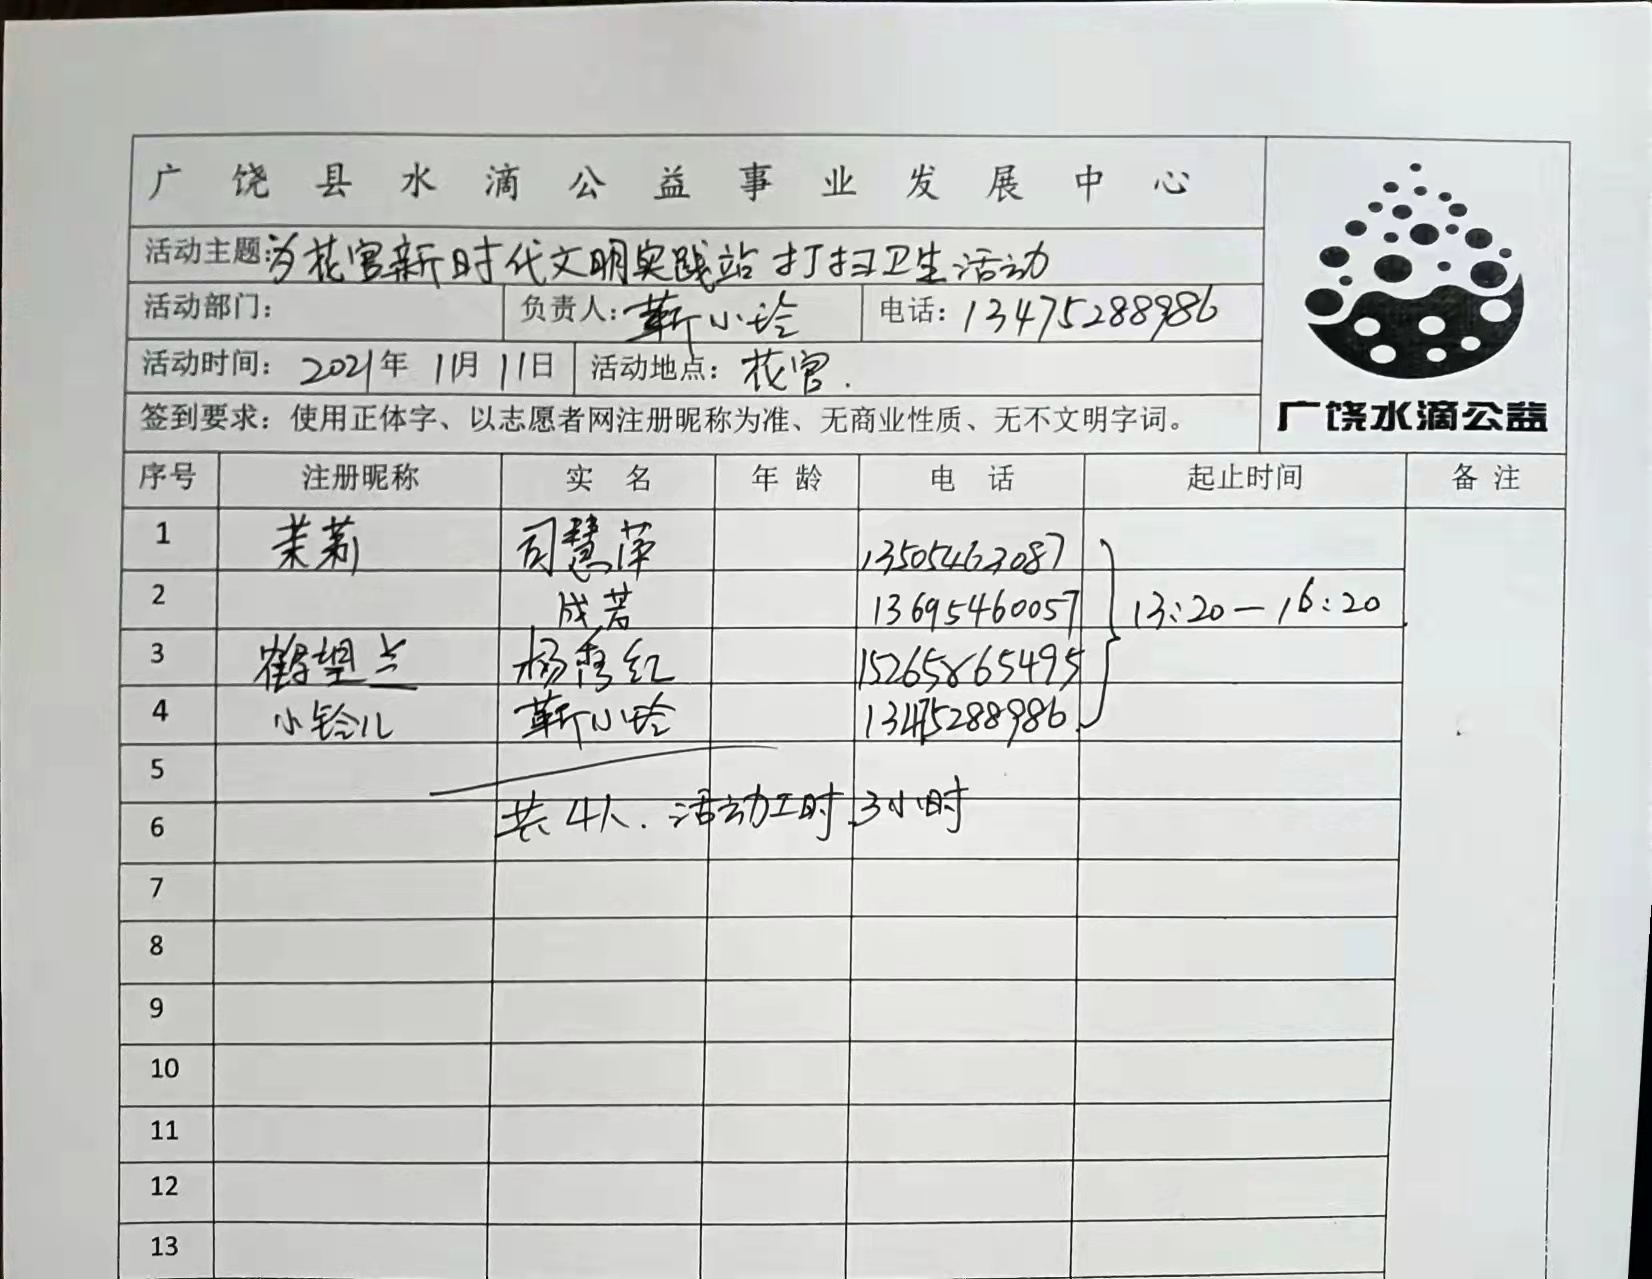 广饶县水滴公益事业发展中心
活动主题:为花官新时代文明实践站打扫卫生活动
活动部门: 负责人: 靳小玲 电话: 13475288986
活动时间: 2021年 11月 11日 活动地点: 花官.
签到要求: 使用正体字、以志愿者网注册昵称为准、无商业性质、无不文明字词。
广饶水滴公益
序号 注册昵称 实 名 年 龄 电 话 起止时间 备 注
1 茉莉 司慧萍 13505463087
2 成若 13695460057 13:20—16:20
3 鹤望兰 杨秀红 15265865495
4 小铃儿 靳小玲 13475288986
5
6 共4人. 活动工时.3小时
7
8
9
10
11
12
13